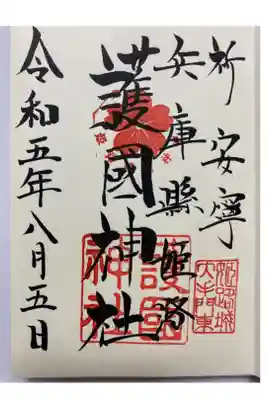 祈安寧
兵庫縣姫路
護國神社
令和五年八月五日
護國
神社
姫路城
大手門東